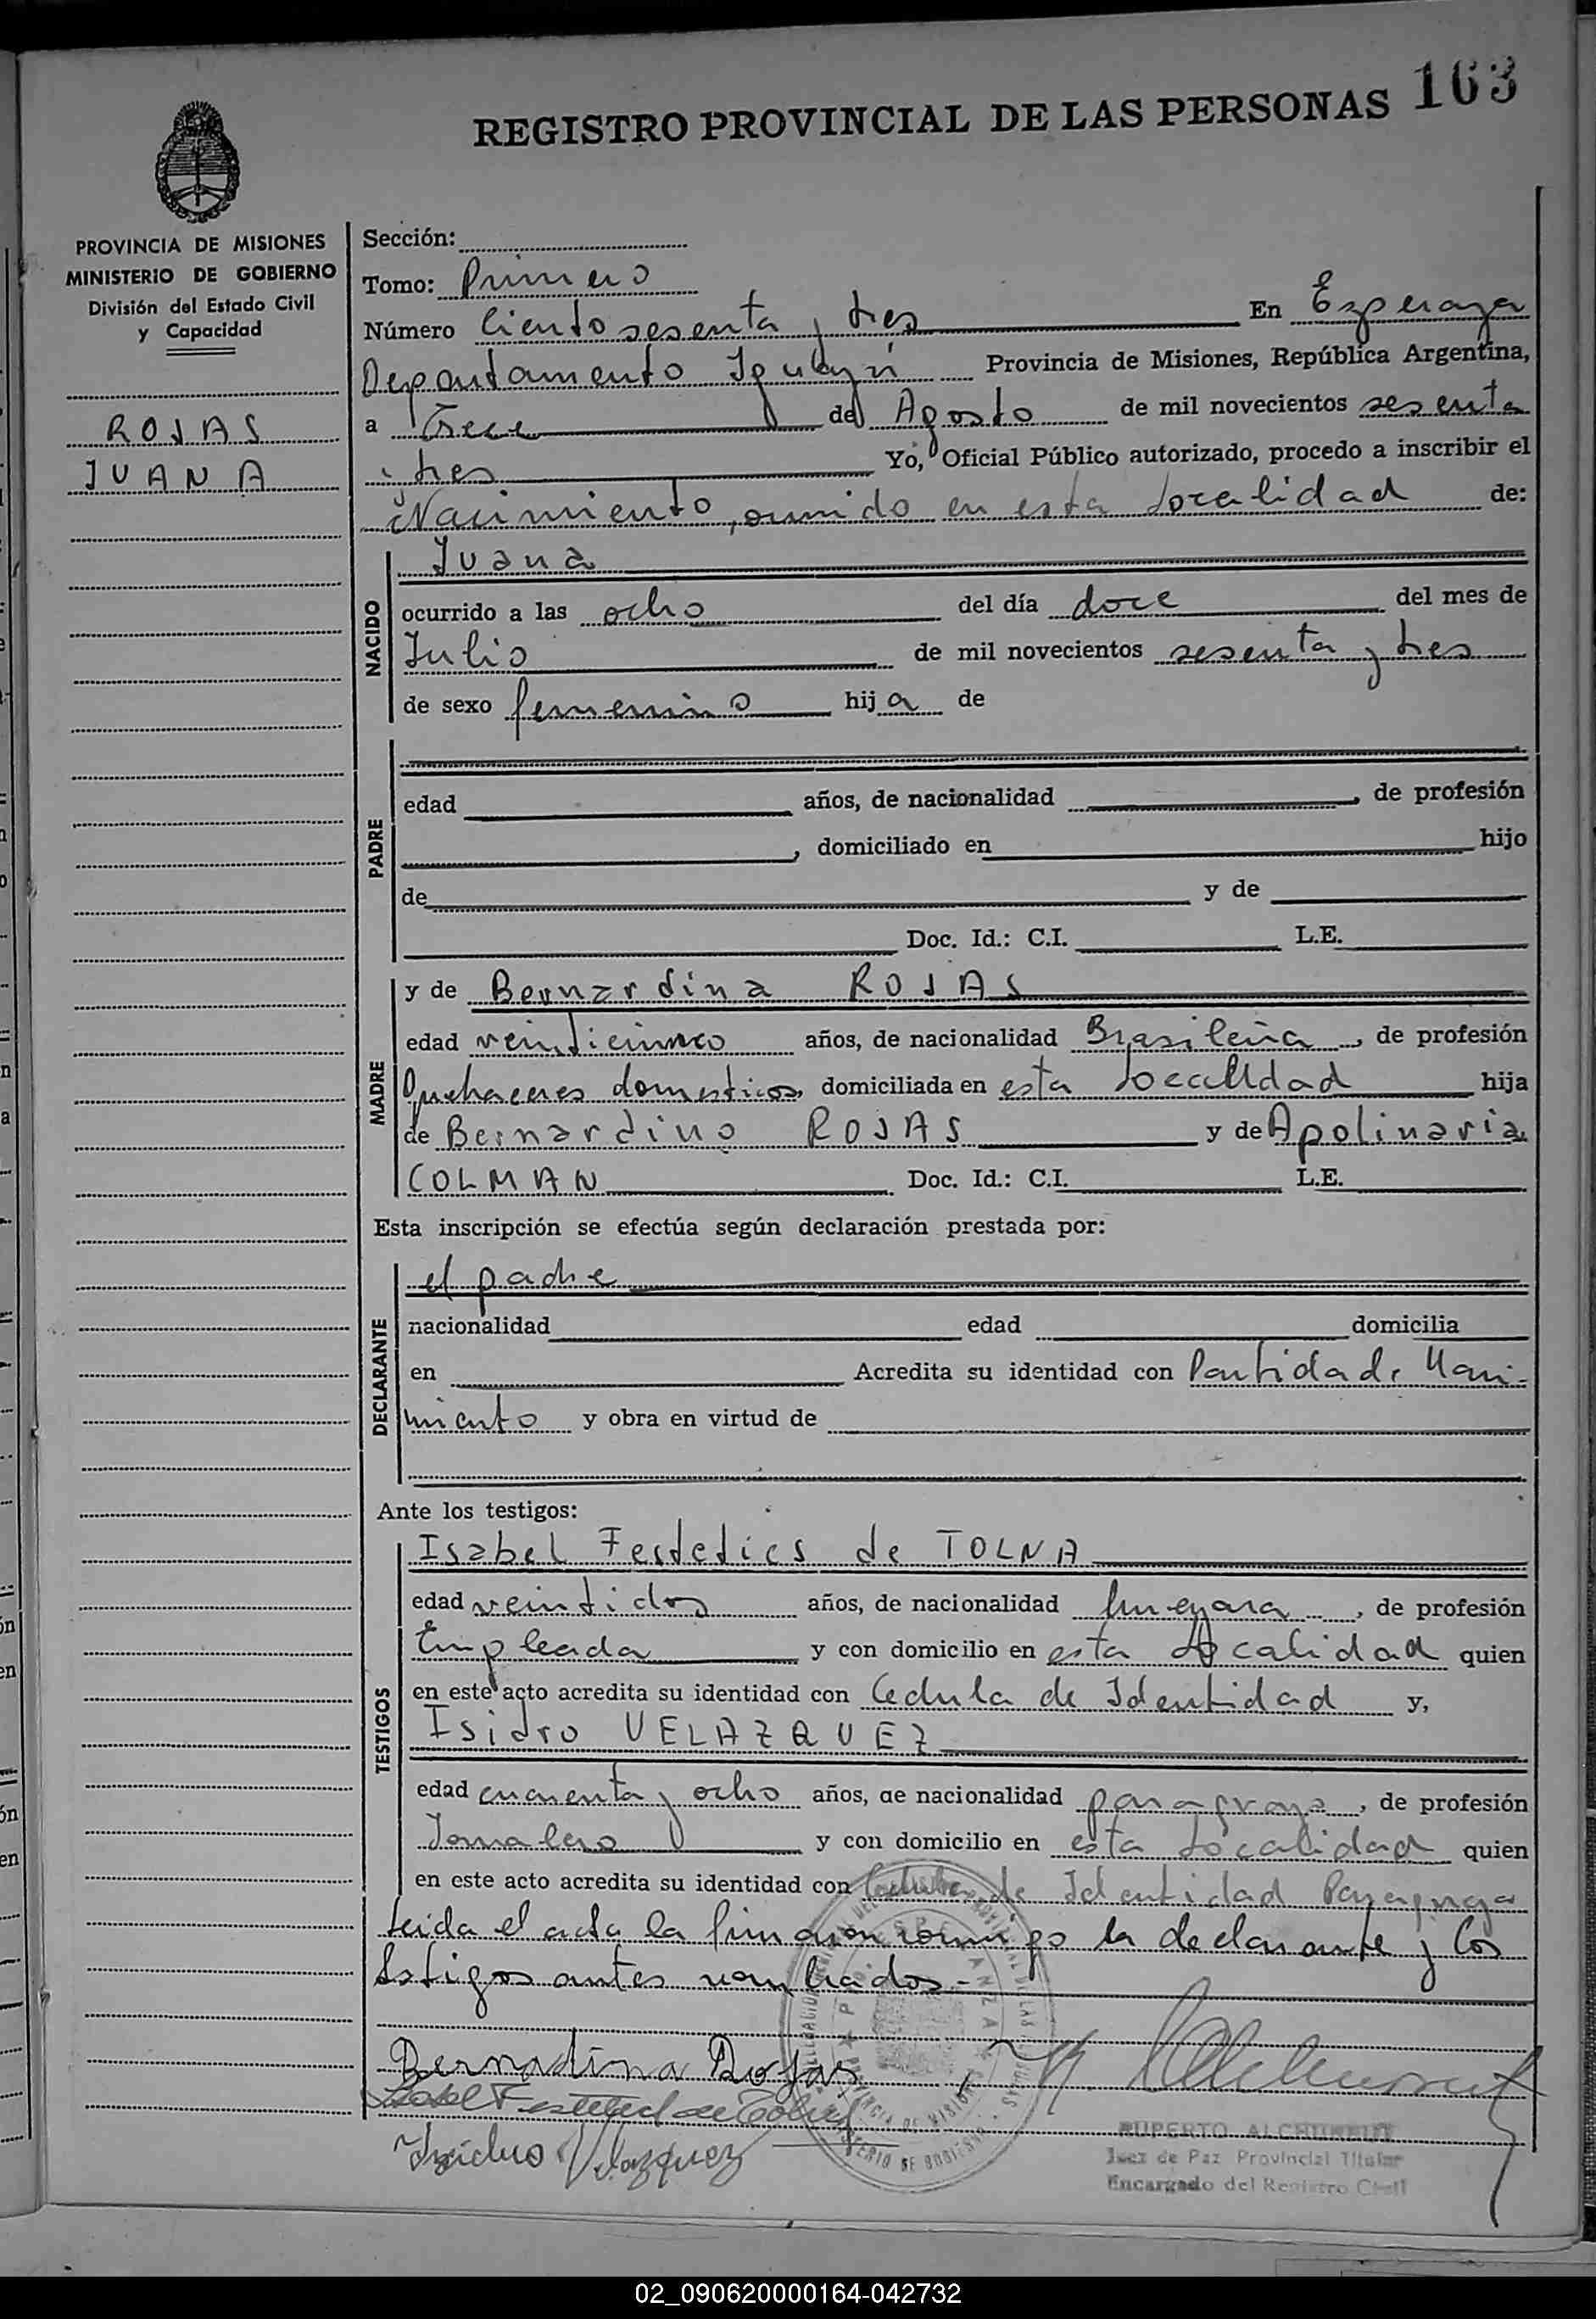 REGISTRO PROVINCIAL DE LAS PERSONAS 163
PROVINCIA DE MISIONES
MINISTERIO DE GOBIERNO
División del Estado Civil
y Capacidad
ROJAS
JUANA
Sección:
Tomo: Primero
Número Ciento sesenta y tres En Esperaza
Departamento Iguazú Provincia de Misiones, República Argentina,
a Trece de Agosto de mil novecientos sesenta
y tres Yo, Oficial Público autorizado, procedo a inscribir el
Nacimiento, ocurrido en esta localidad de:
NACIDO
Juana
ocurrido a las ocho del día doce del mes de
Julio de mil novecientos sesenta y tres
de sexo femenino hija de
PADRE
edad años, de nacionalidad , de profesión
, domiciliado en hijo
de y de
Doc. Id.: C.I. L.E.
MADRE
y de Bernardina ROJAS
edad veinticinco años, de nacionalidad Brasileña, de profesión
Quehaceres domesticos, domiciliada en esta localidad hija
de Bernardino ROJAS y de Apolinaria
COLMAN Doc. Id.: C.I. L.E.
Esta inscripción se efectúa según declaración prestada por:
DECLARANTE
el padre
nacionalidad edad domicilia
en Acredita su identidad con Partida de Naci-
miento y obra en virtud de
Ante los testigos:
TESTIGOS
Isabel Festetics de TOLNA
edad veintidos años, de nacionalidad , de profesión
Empleada y con domicilio en esta localidad quien
en este acto acredita su identidad con Cedula de Identidad y,
Isidro VELAZQUEZ
edad cuarenta y ocho años, de nacionalidad paraguayo, de profesión
Jornalero y con domicilio en esta localidad quien
en este acto acredita su identidad con Cedula de Identidad Paraguaya
Leida el acta la firmaron conmigo la declarante y los
testigos antes nombrados.-
Bernadina Rojas
Isabel Festetics de Tolna
Isidro Velazquez
RUPERTO
Juez de Paz Provincial Titular
Encargado del Registro Civil
02_090620000164-042732